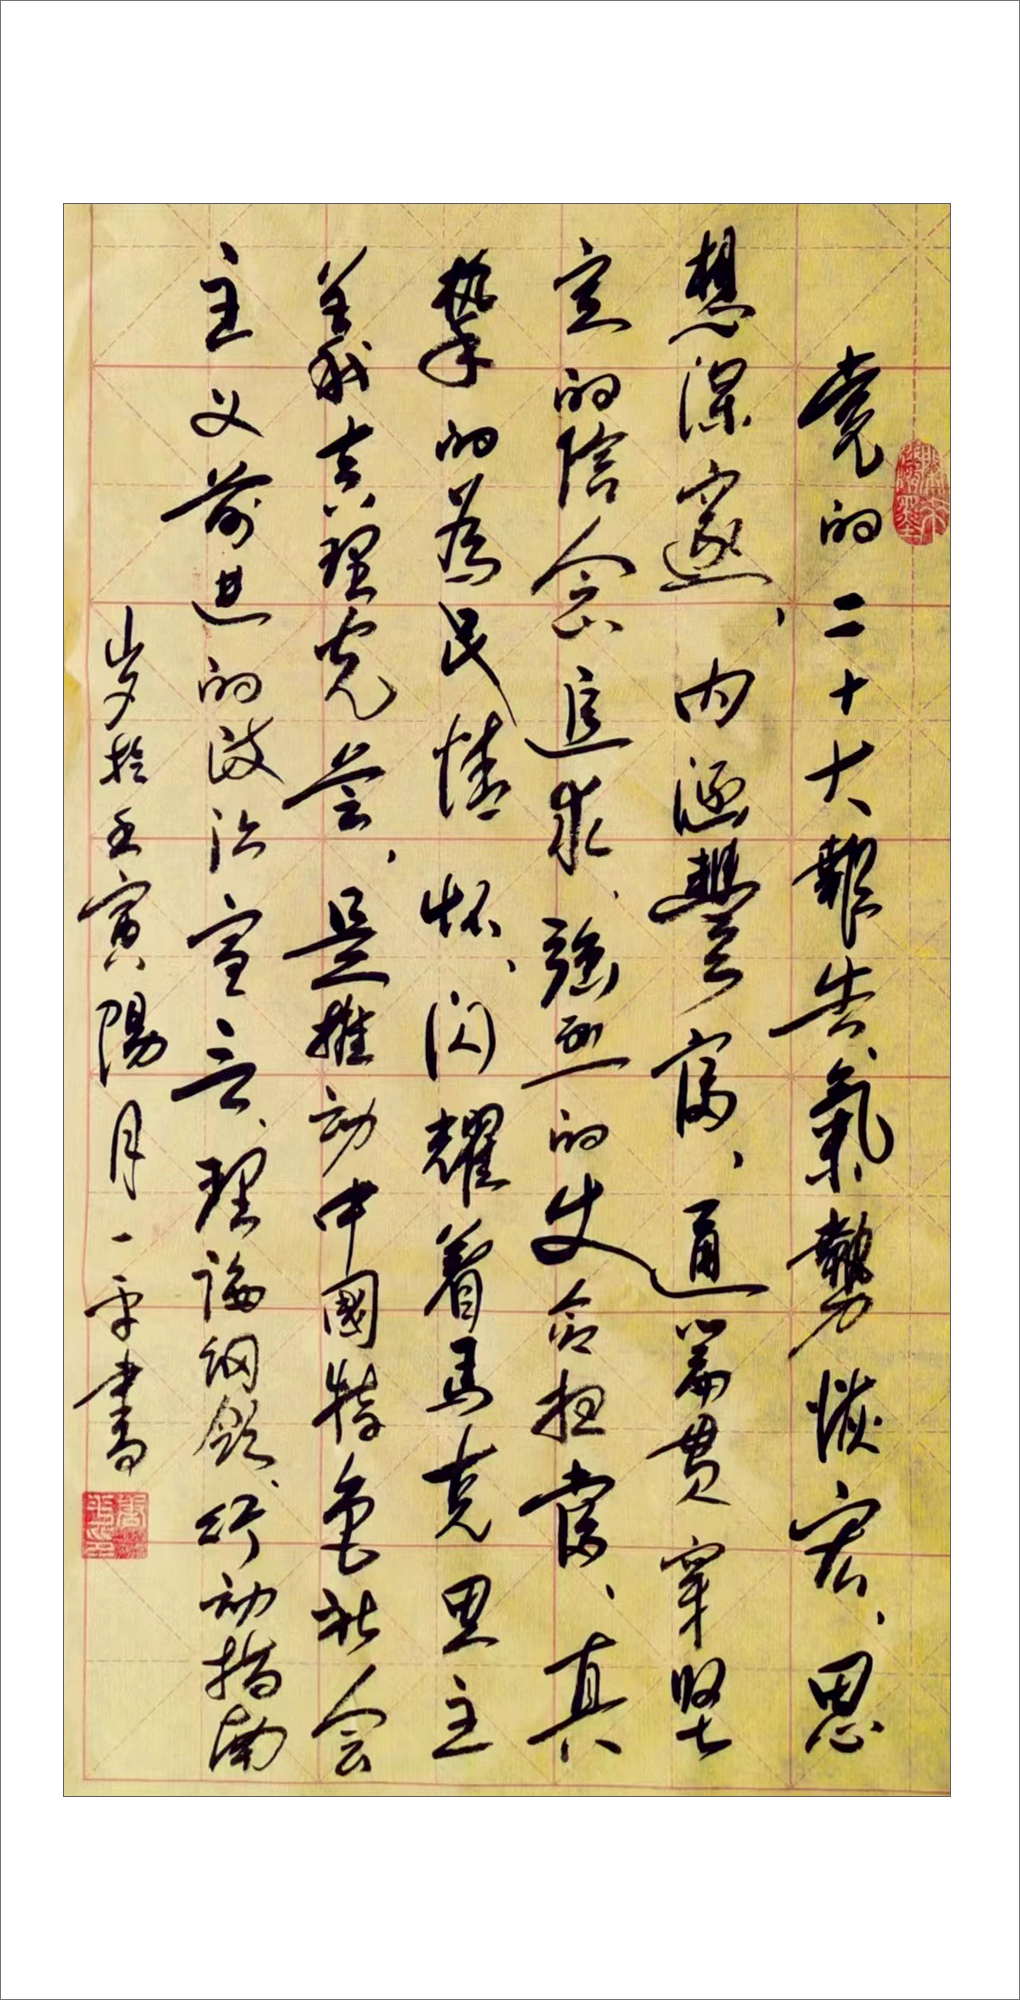 党的二十大報告氣勢恢宏、思
想深邃、内涵豐富、通篇贯穿坚
定的信念追求、強烈的使命担當、真
摯的為民情怀、闪耀着馬克思主
義真理光芒、是推动中國特色社会
主义前进的政治宣言、理論纲领、行动指南
岁於壬寅陽月一平書